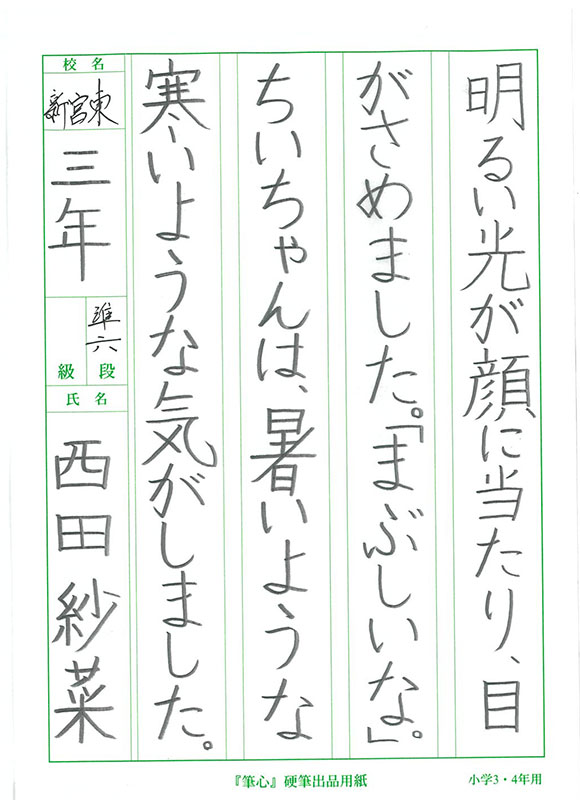 明るい光が顔に当たり、目
がさめました。「まぶしいな。」
ちいちゃんは、暑いような
寒いような気がしました。
校名
新宮東
三年
準六
段
級
氏名
西田紗菜
『筆心』硬筆出品用紙
小学3・4年用